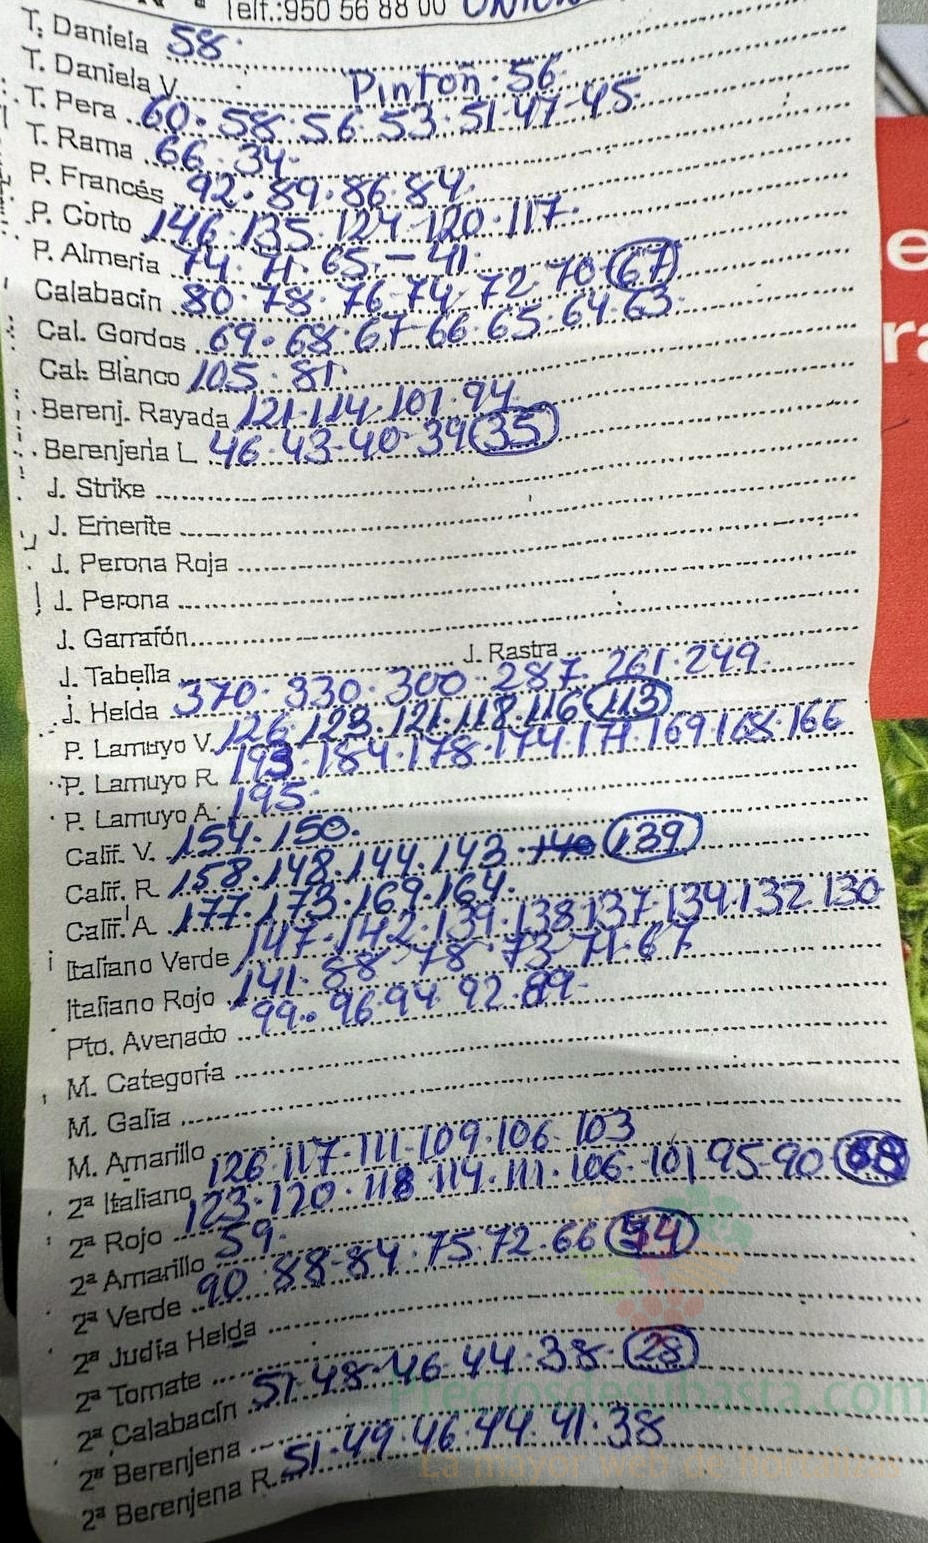 Telf.:950 56 88 00 UNION
T. Daniela 58.
T. Daniela V. Pinton. 56
T. Pera 60. 58. 56. 53. 51. 47-45
T. Rama 66. 34.
P. Francés 92. 89. 86. 84.
P. Corto 146. 135. 124-120. 117.
P. Almería 74. 71. 65. - 41.
Calabacín 80. 78. 76-74. 72 70 67
Cal. Gordos 69. 68. 67-66. 65. 64. 63.
Cal. Blanco 105. 81.
Berenj. Rayada 121. 114. 101. 94.
Berenjena L 46. 43-40. 39 35
J. Strike
J. Emerite
J. Perona Roja
J. Perona
J. Garrafón
J. Tabella J. Rastra
J. Helda 370. 330. 300. 287. 261. 249.
P. Lamuyo V. 126. 123. 121. 118. 116 113
P. Lamuyo R. 193. 184. 178. 174. 171. 169. 168. 166
P. Lamuyo A. 195.
Calif. V. 154. 150.
Calif. R. 158. 148. 144. 143. 140 139
Calif. A. 177. 173. 169. 164.
Italiano Verde 147. 142. 139. 138 137. 134. 132 130
Italiano Rojo 141. 88. 78. 73. 71. 67
Pto. Avenado 99. 96. 94 92. 89.
M. Categoría
M. Galia
M. Amarillo
2ª Italiano 126. 117. 111. 109. 106. 103
2ª Rojo 123. 120. 118 114. 111. 106. 101 95-90 68
2ª Amarillo 59.
2ª Verde 90. 88-84. 75. 72. 66
2ª Judía Helda
2ª Tomate
2ª Calabacín 51. 48-46. 44. 38. 28
2ª Berenjena
2ª Berenjena R. 51. 49. 46. 44. 41. 38
Preciosdesubasta.com
La mayor web de hortalizas